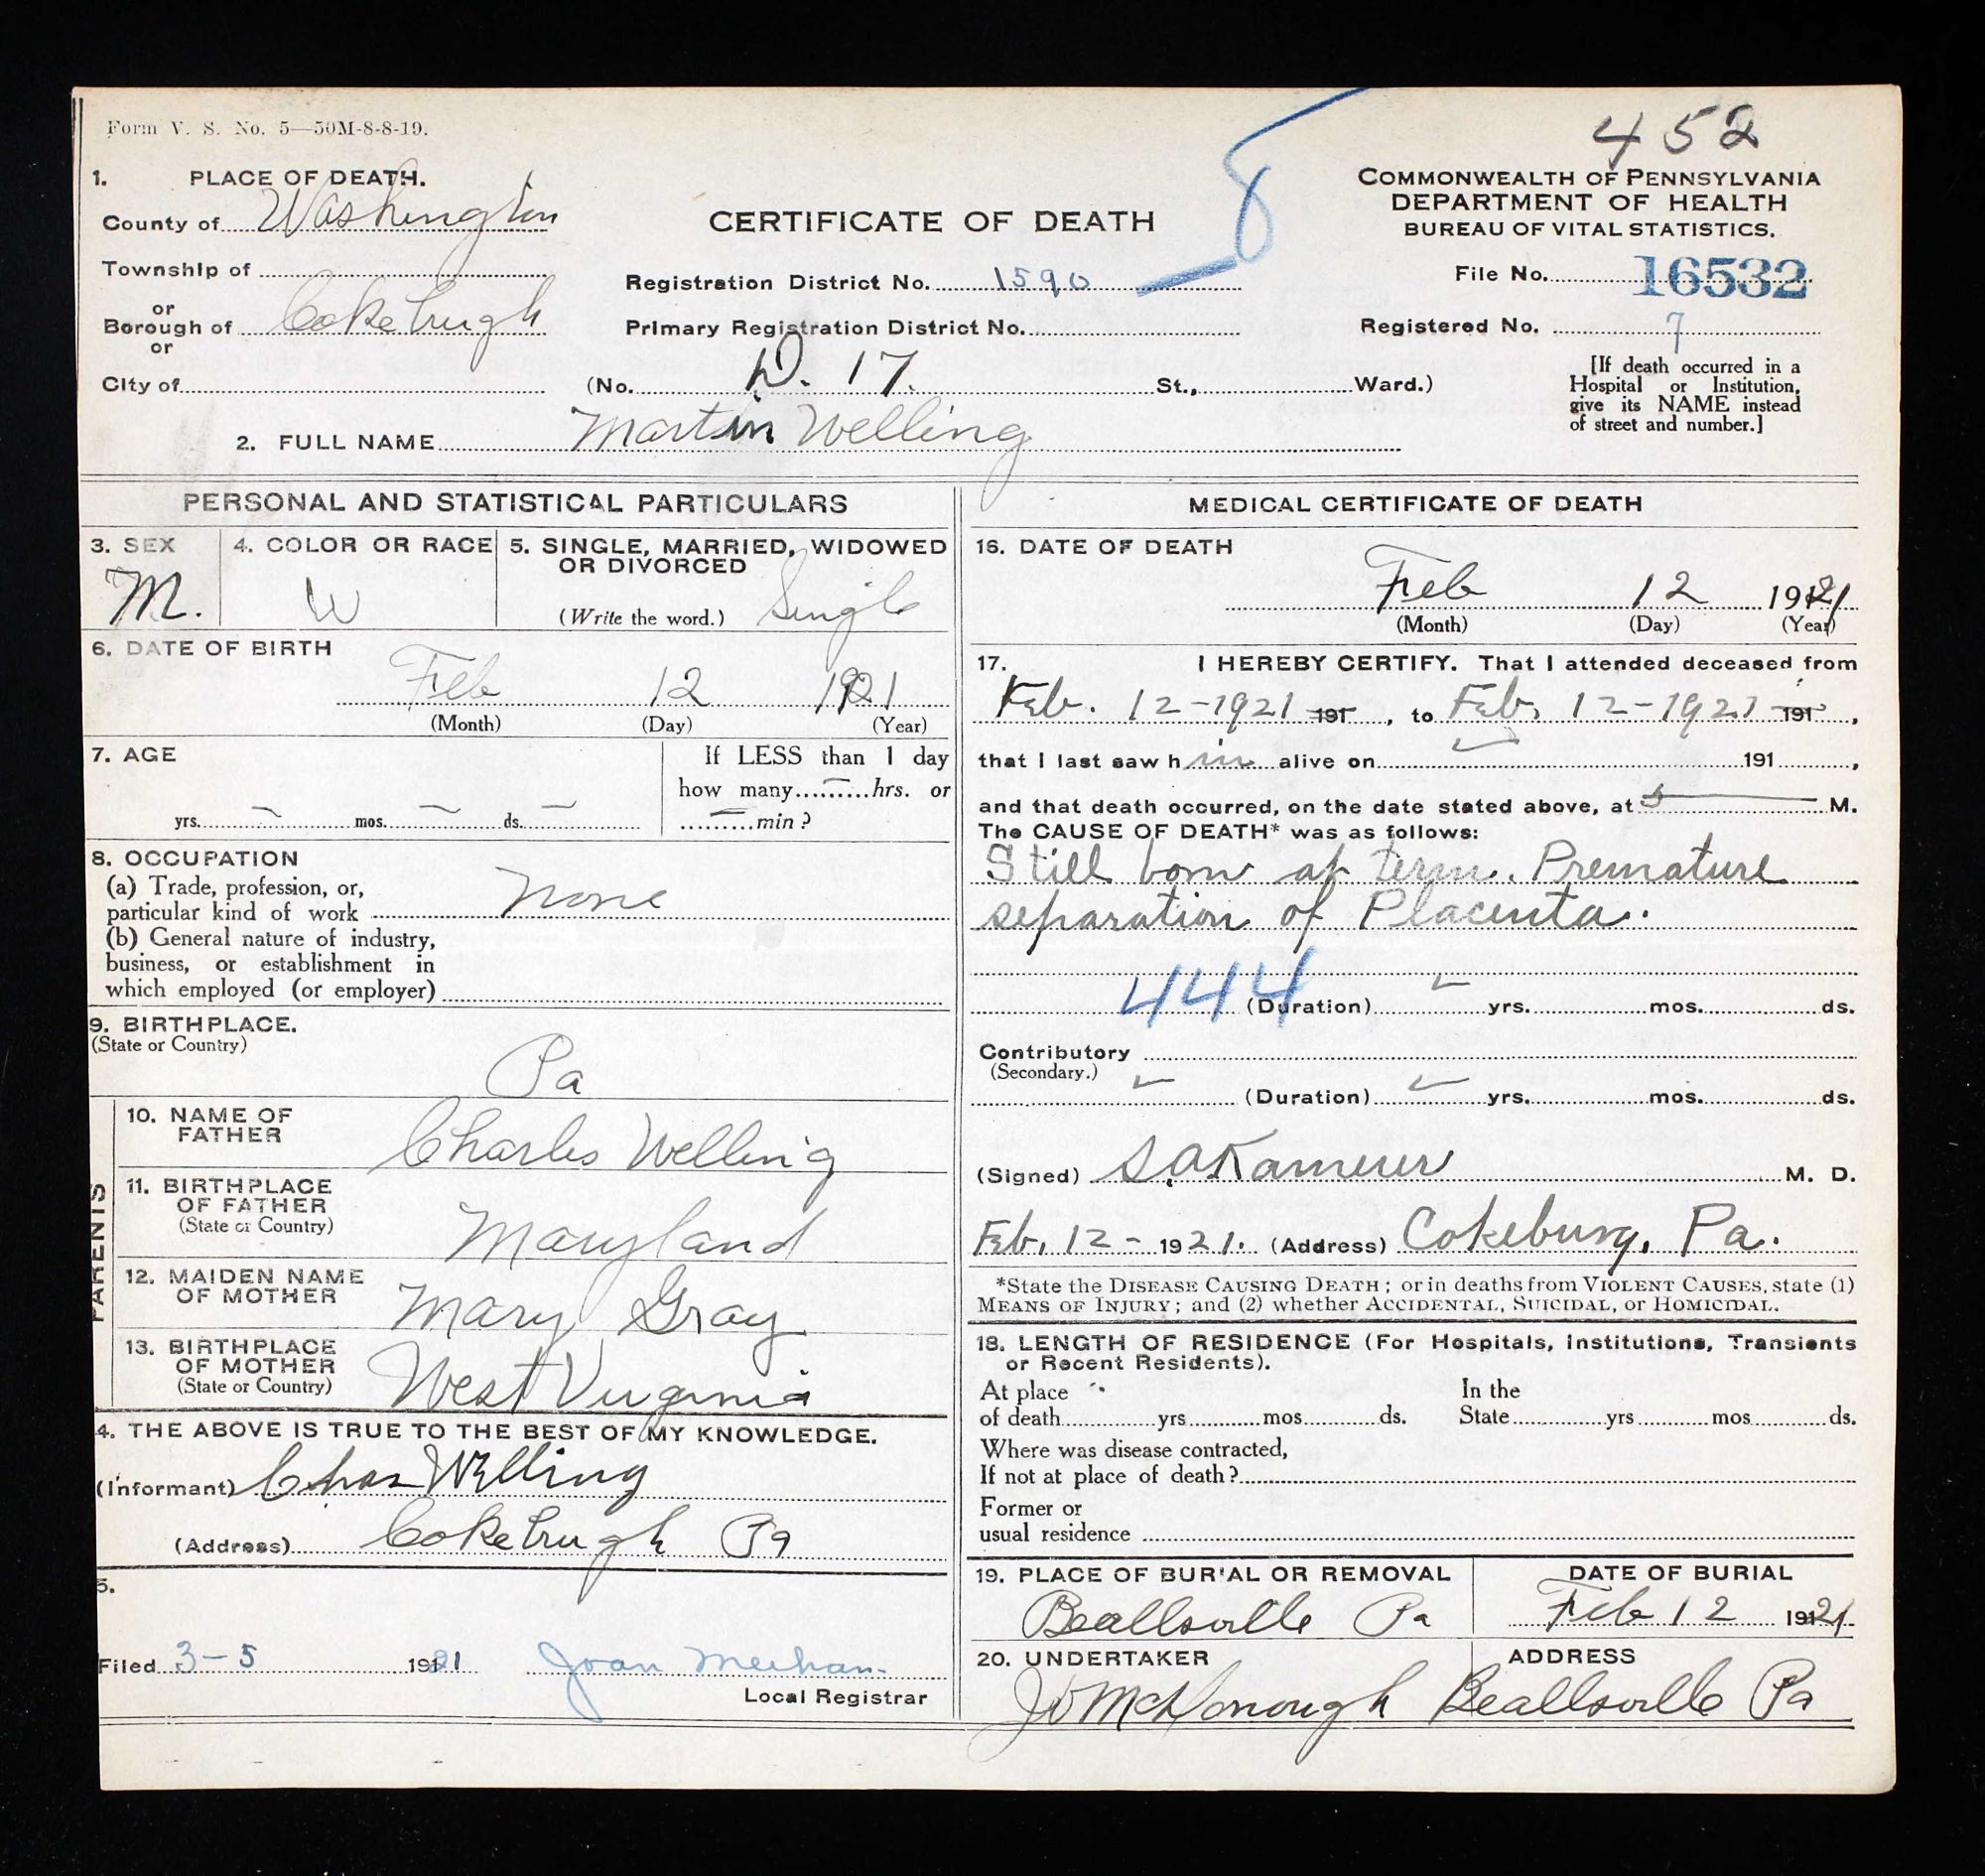 Form V. S. No. 5—50M-8-8-19.
452
1. PLACE OF DEATH.
County of Washington
Township of
or
Borough of Cokeburgh
or
City of
CERTIFICATE OF DEATH
8
Registration District No. 1590
Primary Registration District No.
(No. D. 17. St., Ward.)
COMMONWEALTH OF PENNSYLVANIA
DEPARTMENT OF HEALTH
BUREAU OF VITAL STATISTICS.
File No. 16532
Registered No. 7
[If death occurred in a
Hospital or Institution,
give its NAME instead
of street and number.]
2. FULL NAME Martin Welling
PERSONAL AND STATISTICAL PARTICULARS
3. SEX
M.
4. COLOR OR RACE
W
5. SINGLE, MARRIED, WIDOWED
OR DIVORCED
(Write the word.) Single
6. DATE OF BIRTH
Feb 12 1921
(Month) (Day) (Year)
7. AGE
yrs. — mos. — ds. —
If LESS than 1 day
how many — hrs. or
— min ?
8. OCCUPATION
(a) Trade, profession, or,
particular kind of work none
(b) General nature of industry,
business, or establishment in
which employed (or employer)
9. BIRTHPLACE.
(State or Country)
Pa
PARENTS
10. NAME OF
FATHER
Charles Welling
11. BIRTHPLACE
OF FATHER
(State or Country)
Maryland
12. MAIDEN NAME
OF MOTHER
Mary Gray
13. BIRTHPLACE
OF MOTHER
(State or Country)
West Virginia
4. THE ABOVE IS TRUE TO THE BEST OF MY KNOWLEDGE.
(Informant) Chas Welling
(Address) Cokeburgh Pa
5.
Filed 3-5 1921 Joan Meehan
Local Registrar
MEDICAL CERTIFICATE OF DEATH
16. DATE OF DEATH
Feb 12 1921
(Month) (Day) (Year)
17. I HEREBY CERTIFY. That I attended deceased from
Feb. 12-1921 191 , to Feb. 12-1921 191 ,
that I last saw h im alive on 191 ,
and that death occurred, on the date stated above, at 5 M.
The CAUSE OF DEATH* was as follows:
Still born at term. Premature
separation of Placenta.
444 (Duration) yrs. mos. ds.
Contributory
(Secondary.)
(Duration) yrs. mos. ds.
(Signed) M. D.
Feb. 12 - 1921. (Address) Cokeburg, Pa.
*State the DISEASE CAUSING DEATH; or in deaths from VIOLENT CAUSES, state (1)
MEANS OF INJURY; and (2) whether ACCIDENTAL, SUICIDAL, or HOMICIDAL.
18. LENGTH OF RESIDENCE (For Hospitals, Institutions, Transients
or Recent Residents).
At place
of death yrs mos ds.
In the
State yrs mos ds.
Where was disease contracted,
If not at place of death?
Former or
usual residence
19. PLACE OF BURIAL OR REMOVAL
Beallsville Pa
DATE OF BURIAL
Feb 12 1921
20. UNDERTAKER
McDonough
ADDRESS
Beallsville Pa